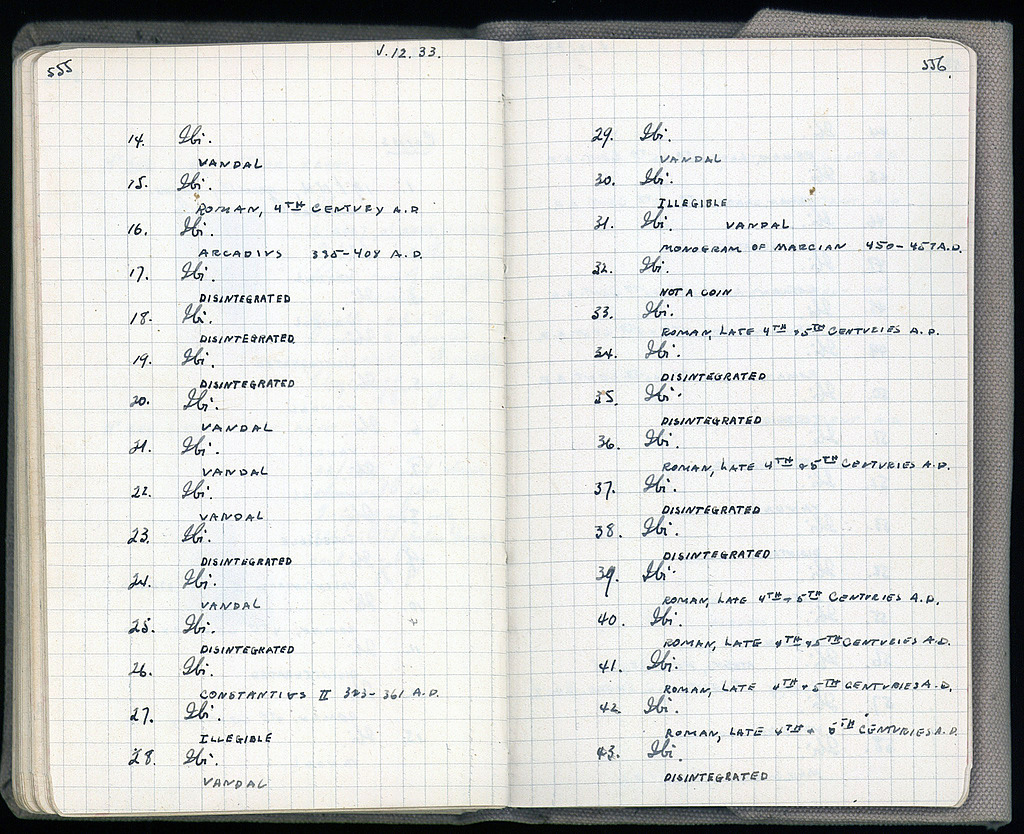 555
V.12.33.
14. Ibi.
VANDAL
15. Ibi.
ROMAN, 4TH CENTURY A.D
16. Ibi.
ARCADIUS 395-408 A.D.
17. Ibi.
DISINTEGRATED
18. Ibi.
DISINTEGRATED
19. Ibi.
DISINTEGRATED
20. Ibi.
VANDAL
21. Ibi.
VANDAL
22. Ibi.
VANDAL
23. Ibi.
DISINTEGRATED
24. Ibi.
VANDAL
25. Ibi.
DISINTEGRATED
26. Ibi.
CONSTANTIUS II 323-361 A.D.
27. Ibi.
ILLEGIBLE
28. Ibi.
VANDAL
556.
29. Ibi.
VANDAL
30. Ibi.
ILLEGIBLE
31. Ibi. VANDAL
MONOGRAM OF MARCIAN 450-457 A.D.
32. Ibi.
NOT A COIN
33. Ibi.
ROMAN, LATE 4TH + 5TH CENTURIES A.D.
34. Ibi.
DISINTEGRATED
35. Ibi.
DISINTEGRATED
36. Ibi.
ROMAN, LATE 4TH + 5TH CENTURIES A.D.
37. Ibi.
DISINTEGRATED
38. Ibi.
DISINTEGRATED
39. Ibi.
ROMAN, LATE 4TH + 5TH CENTURIES A.D.
40. Ibi.
ROMAN, LATE 4TH + 5TH CENTURIES A.D.
41. Ibi.
ROMAN, LATE 4TH + 5TH CENTURIES A.D.
42. Ibi.
ROMAN, LATE 4TH + 5TH CENTURIES A.D.
43. Ibi.
DISINTEGRATED